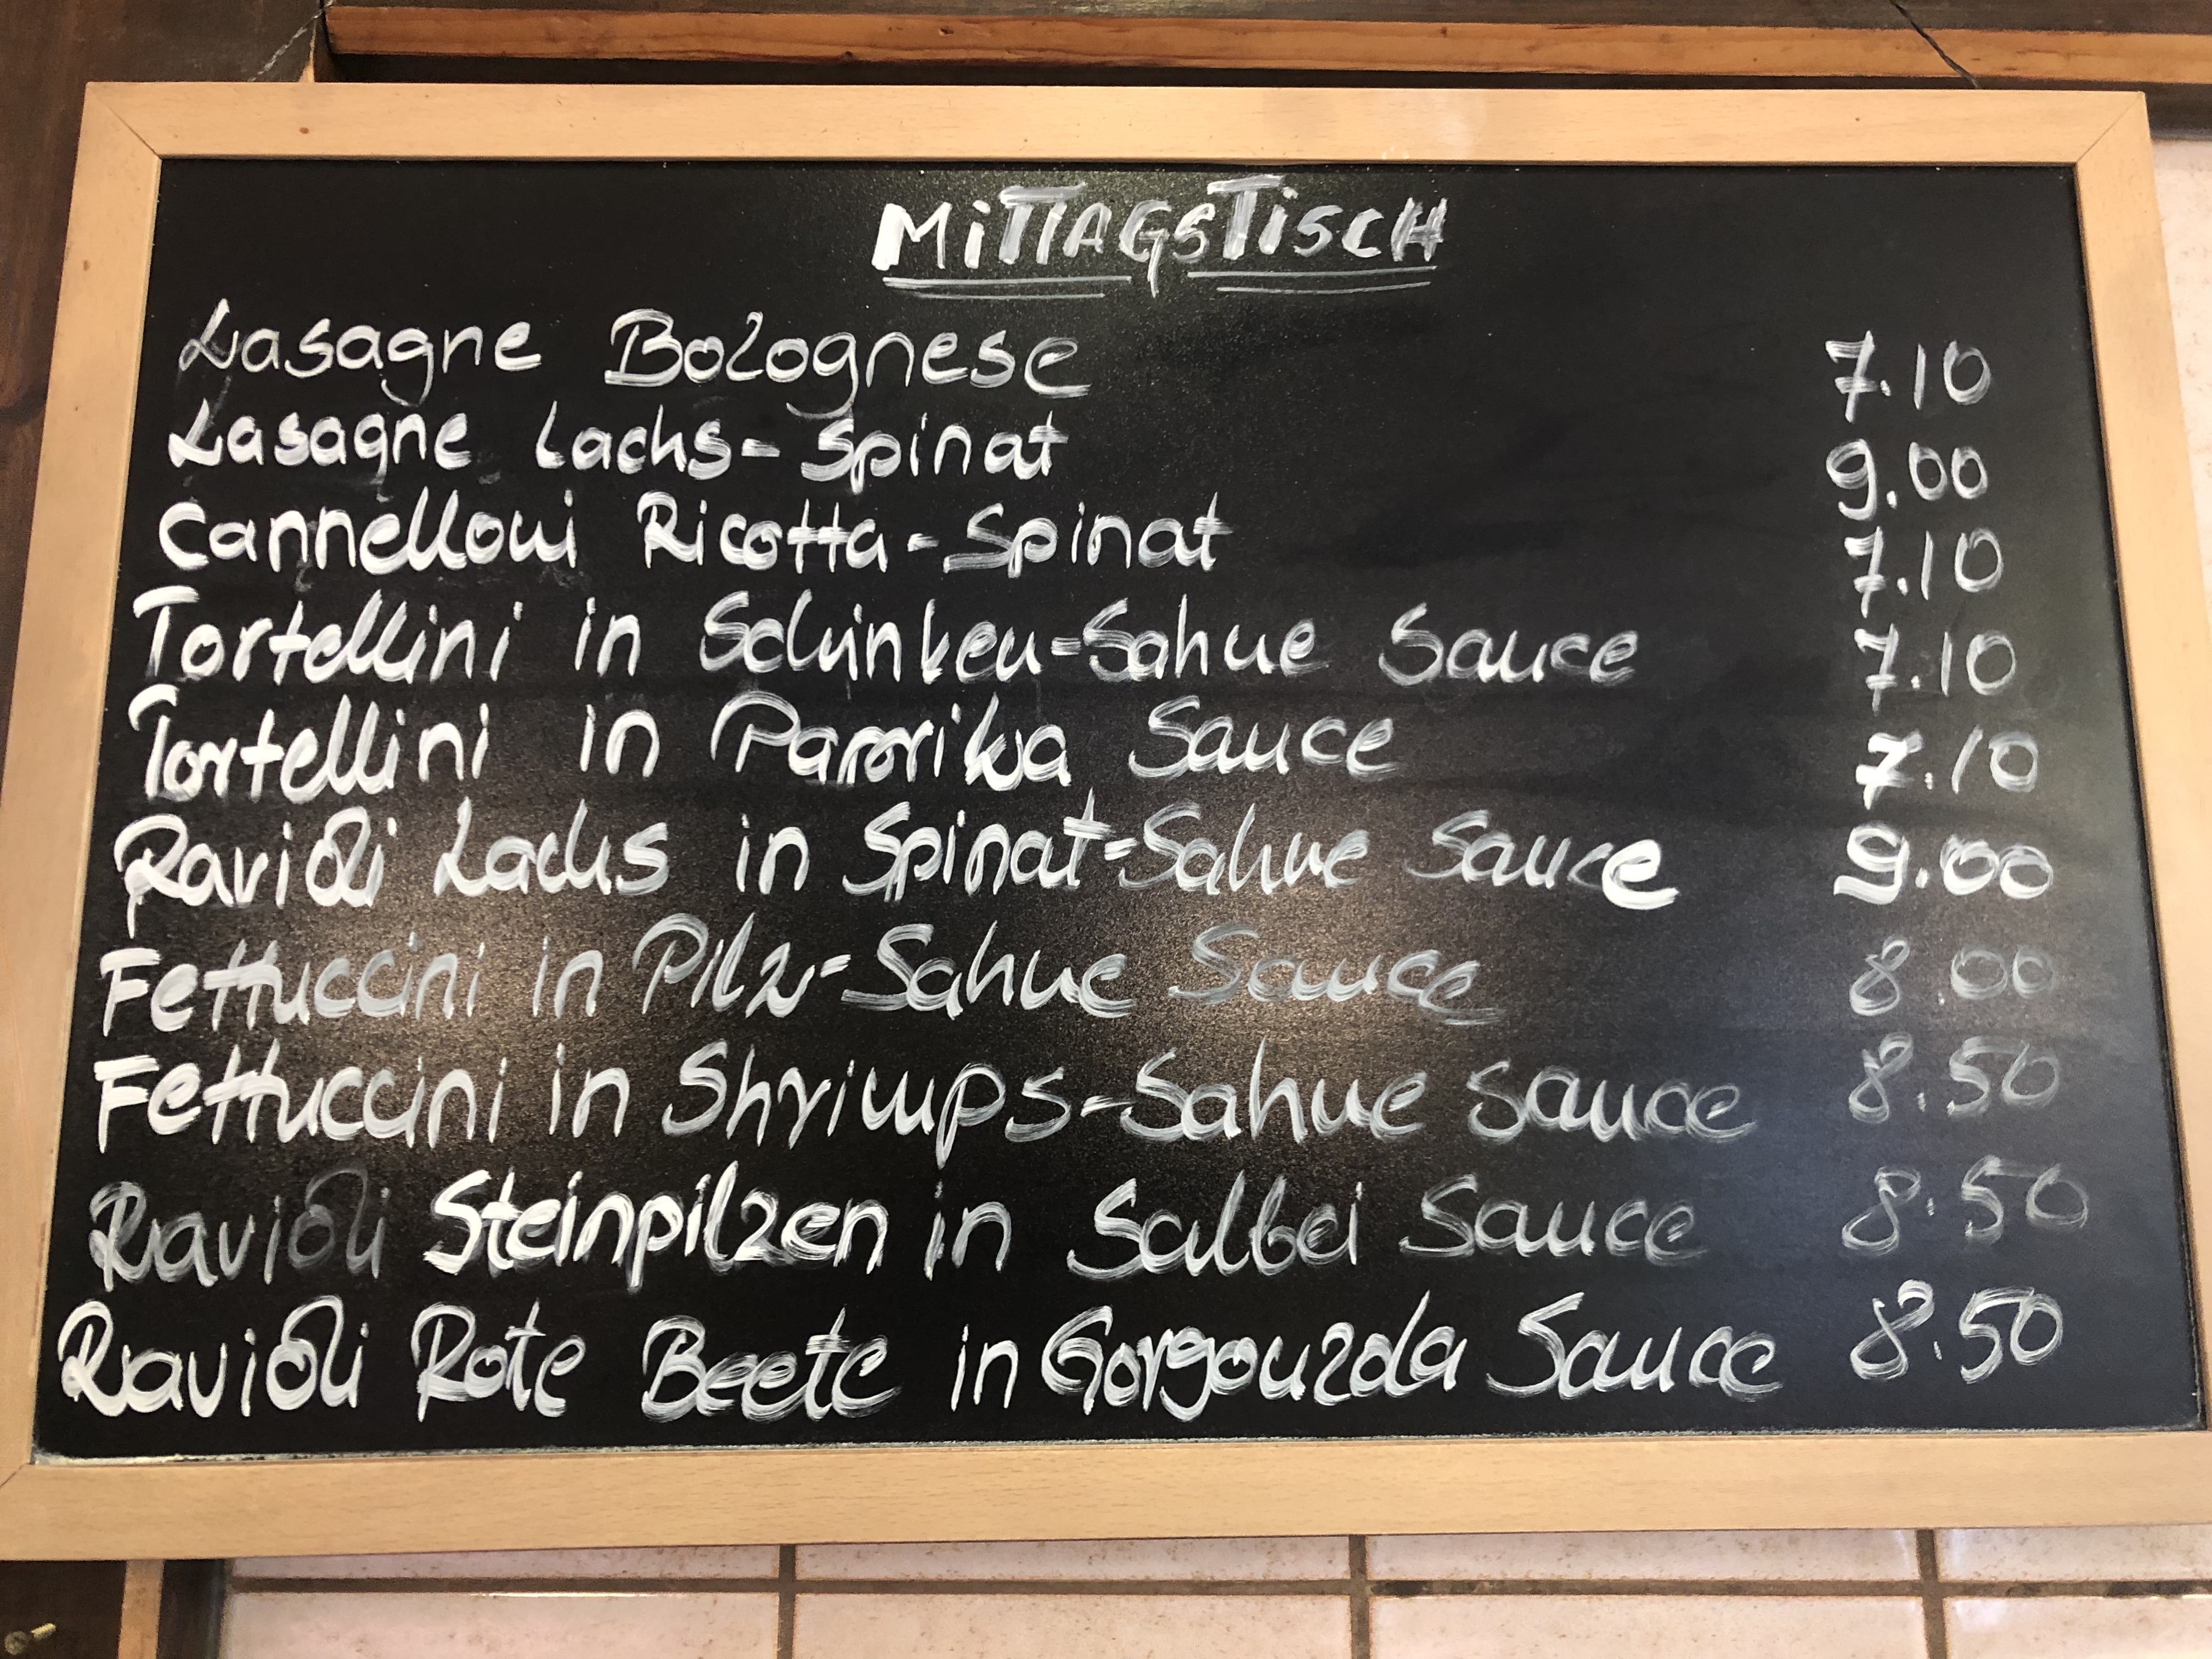 MiTTAGSTiSCH
Lasagne Bolognese 7.10
Lasagne Lachs-Spinat 9.00
Cannelloni Ricotta-Spinat 7.10
Tortellini in Schinken-Sahne Sauce 7.10
Tortellini in Paprika Sauce 7.10
Ravioli Lachs in Spinat-Sahne Sauce 9.00
Fettuccini in Pilz-Sahne Sauce 8.00
Fettuccini in Shrimps-Sahne Sauce 8.50
Ravioli Steinpilzen in Salbei Sauce 8.50
Ravioli Rote Beete in Gorgonzola Sauce 8.50